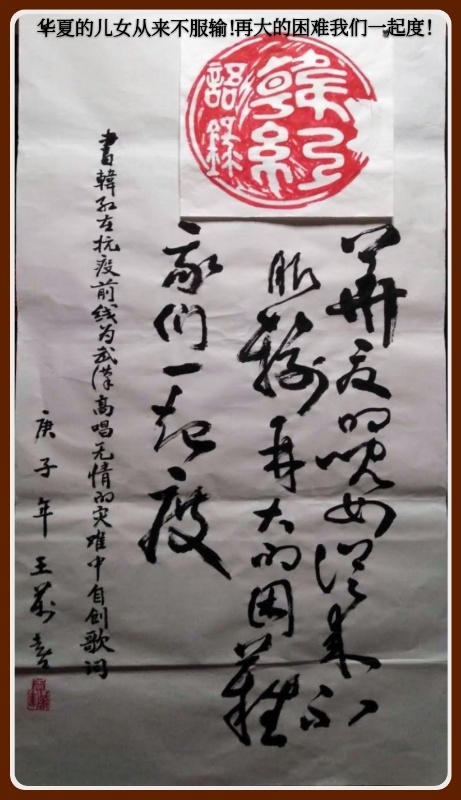 华夏的儿女从来不服输!再大的困难我们一起度!
韓紅
語錄
華夏的兒女從来不
服输再大的困難
我们一起度
書韓红在抗疫前线为武漢高唱无情的灾难中自创歌词
庚子年王萬喜